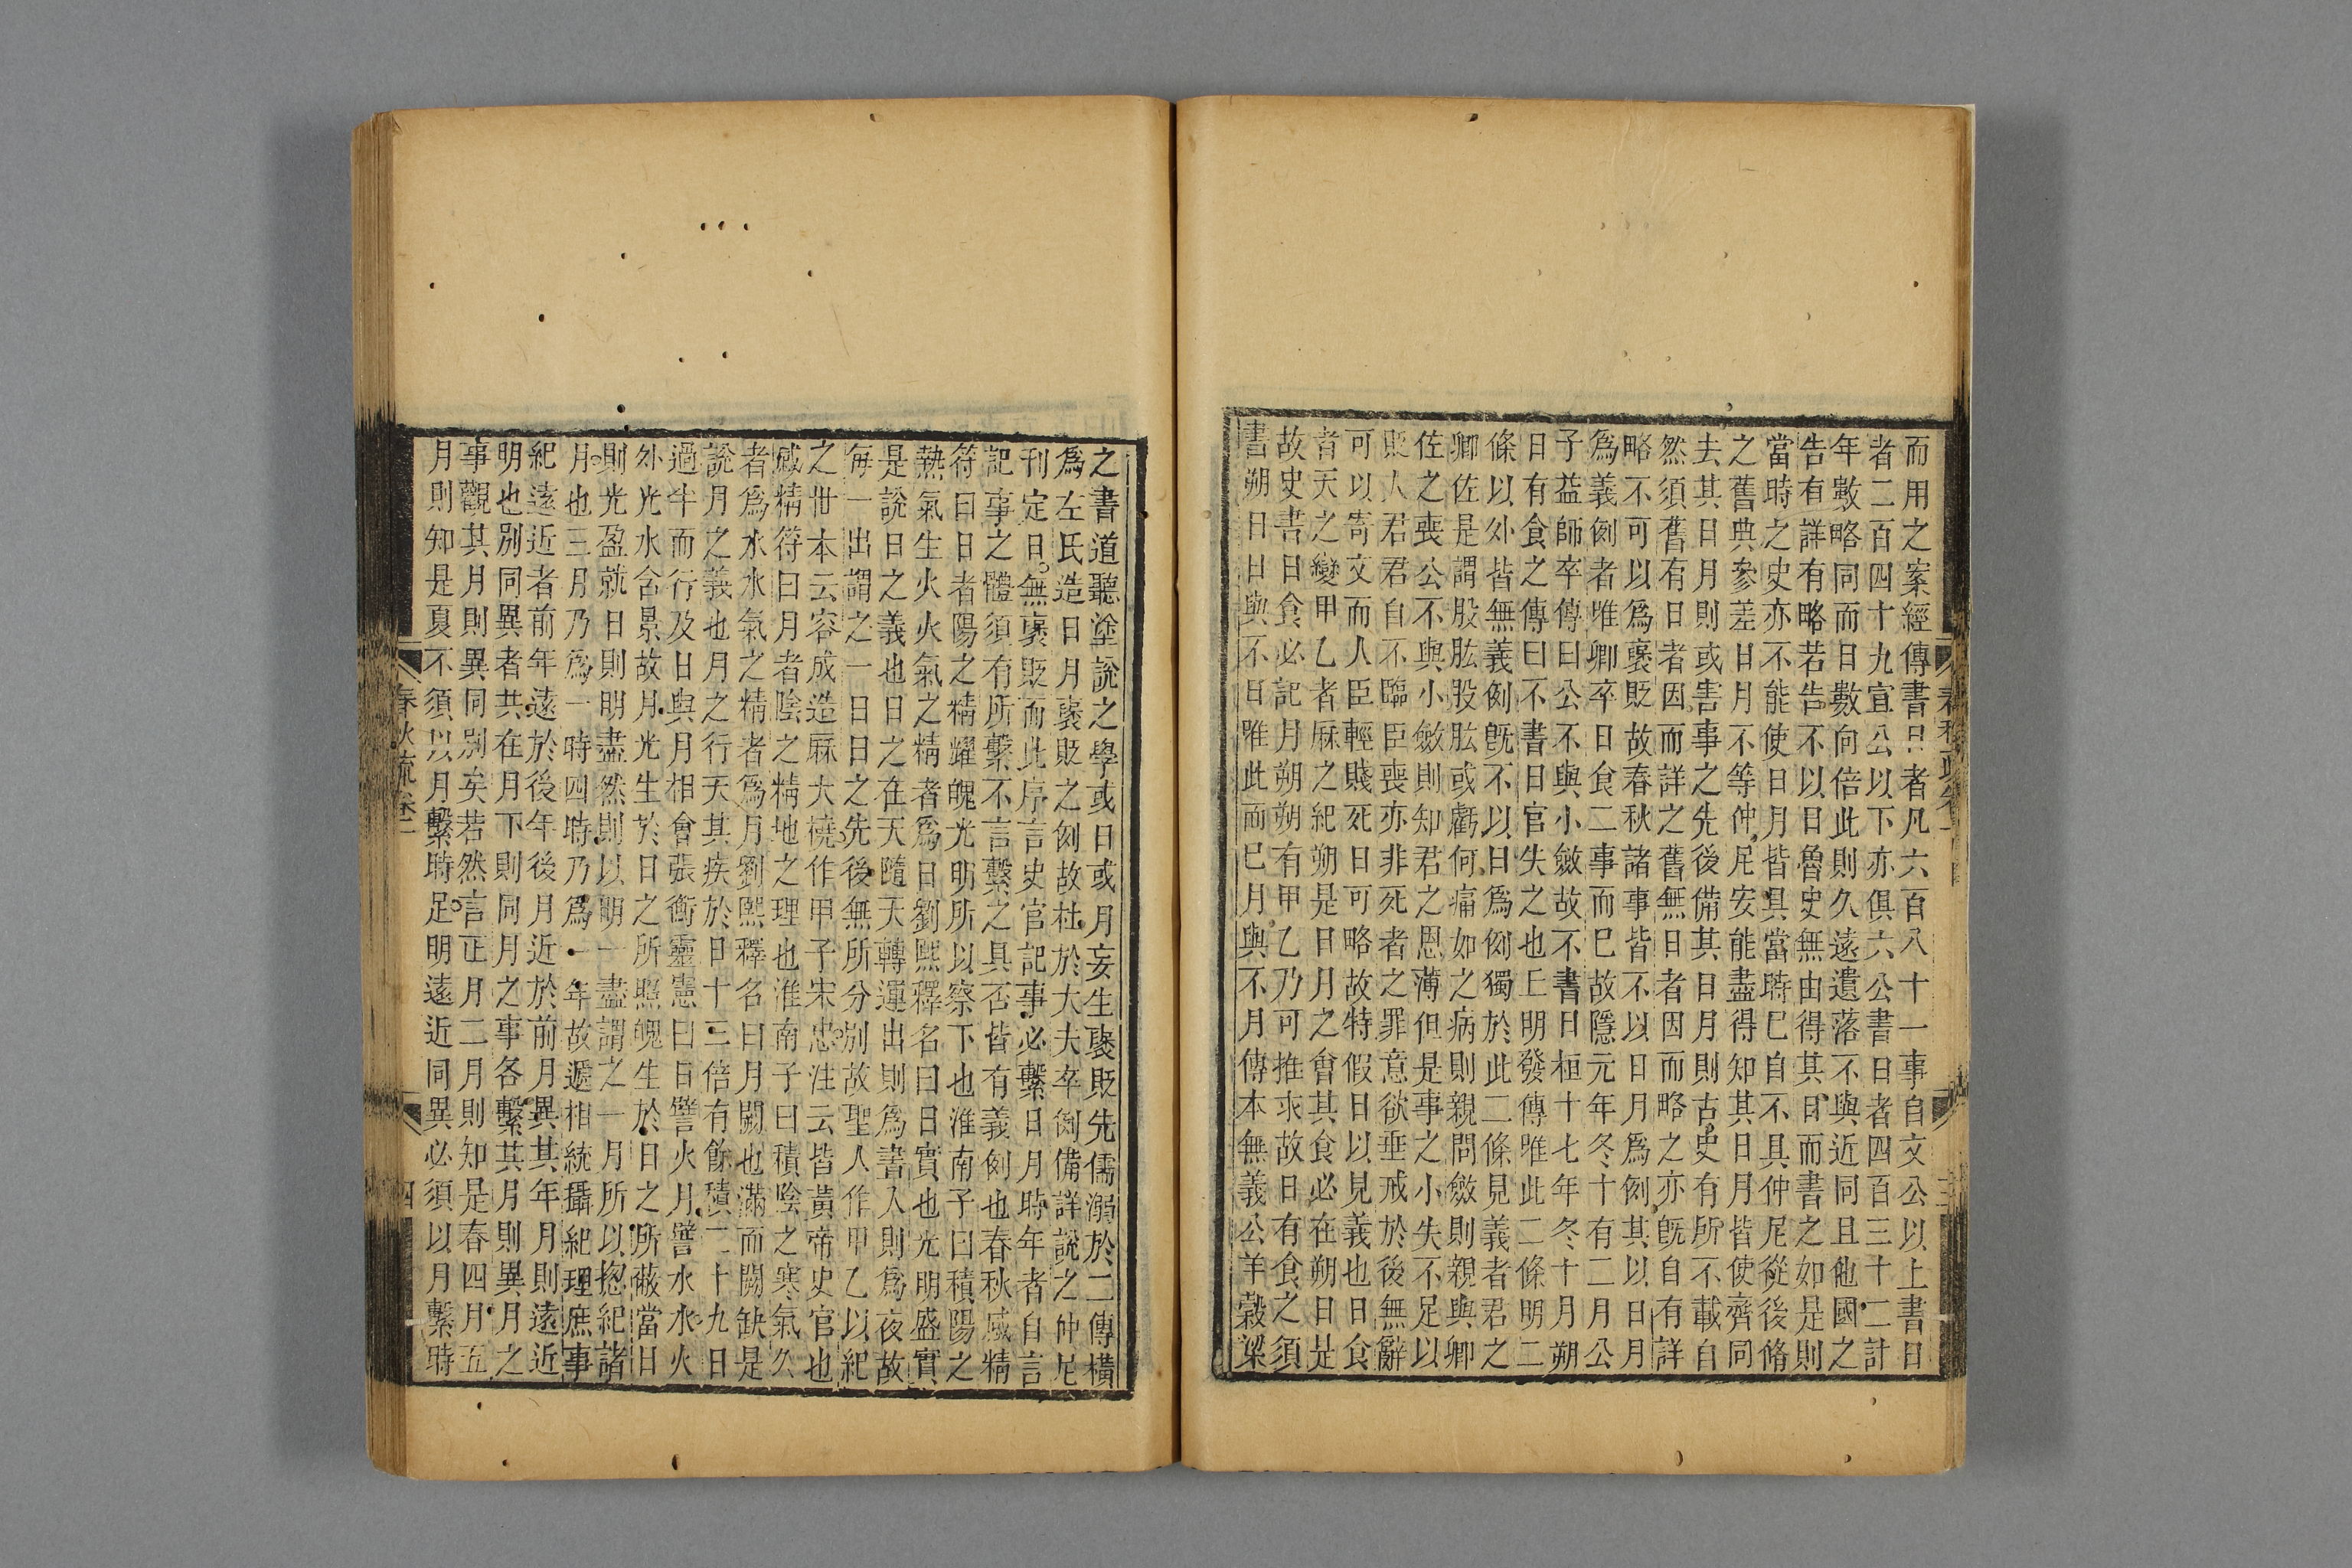 而用之案經傳書日者凡六百八十一事自文公以上書日
者二百四十九宣公以下亦俱六公書日者四百三十二計
年數略同而日數向倍此則久遠遺落不與近同且他國之
告有詳有略若告不以日魯史無由得其日而書之如是則
當時之史亦不能使日月皆具當時已自不具仲尼從後脩
之舊典參差日月不等仲尼安能盡得知其日月皆使齊同
去其日月則或害事之先後備其日月則古史有所不載自
然須舊有日者因而詳之舊無日者因而略之亦旣自有詳
略不可以爲襃貶故春秋諸事皆不以日月爲例其以日月
爲義例者唯卿卒日食二事而已故隱元年冬十有二月公
子益師卒傳曰公不與小斂故不書日桓十七年冬十月朔
日有食之傳曰不書日官失之也丘明發傳唯此二條明二
條以外皆無義例旣不以日爲例獨於此二條見義者君之
卿佐是謂股肱股肱或虧何痛如之病則親問斂則親與卿
佐之喪公不與小斂則知君之恩薄但是事之小失不足以
貶人君君自不臨臣喪亦非死者之罪意欲垂戒於後無辭
可以寄文而人臣輕賤死日可略故特假日以見義也日食
者天之變甲乙者厤之紀朔是日月之會其食必在朔日是
故史書日食必記月朔朔有甲乙乃可推求故日有食之須
書朔日日與不日唯此而已月與不月傳本無義公羊穀梁
之書道聽塗說之學或日或月妄生襃貶先儒溺於二傳橫
爲左氏造日月襃貶之例故杜於大夫卒例備詳說之仲尼
刊定日無襃貶而此序言史官記事必繫日月時年者自言
記事之體須有所繫不言繫之具否皆有義例也春秋感精
符曰日者陽之精耀魄光明所以察下也淮南子曰積陽之
熱氣生火火氣之精者爲日劉熙釋名曰日實也光明盛實
是說日之義也日之在天隨天轉運出則爲晝入則爲夜故
每一出謂之一日日之先後無所分別故聖人作甲乙以紀
之世本云容成造厤大橈作甲子宋忠注云皆黃帝史官也
感精符曰月者陰之精地之理也淮南子曰積陰之寒氣久
者爲水水氣之精者爲月劉熙釋名曰月闕也滿而闕缺是
說月之義也月之行天其疾於日十三倍有餘積二十九日
過半而行及日與月相會張衡靈憲曰日譬火月譬水水火
外光水含景故月光生於日之所照魄生於日之所蔽當日
則光盈就日則明盡然則以明一盡謂之一月所以揔紀諸
月也三月乃爲一時四時乃爲一年故遞相統攝紀理庶事
紀遠近者前年遠於後年後月近於前月異其年月則遠近
明也別同異者共在月下則同月之事各繫其月則異月之
事觀其月則異同別矣若然言正月二月則知是春四月五
月則知是夏不須以月繫時足明遠近同異必須以月繫時
春秋疏卷一
四